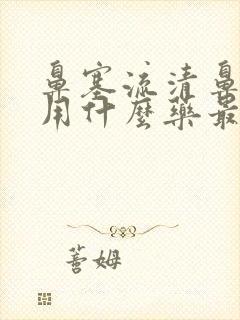 鼻塞流清鼻
用什麼藥最
姆